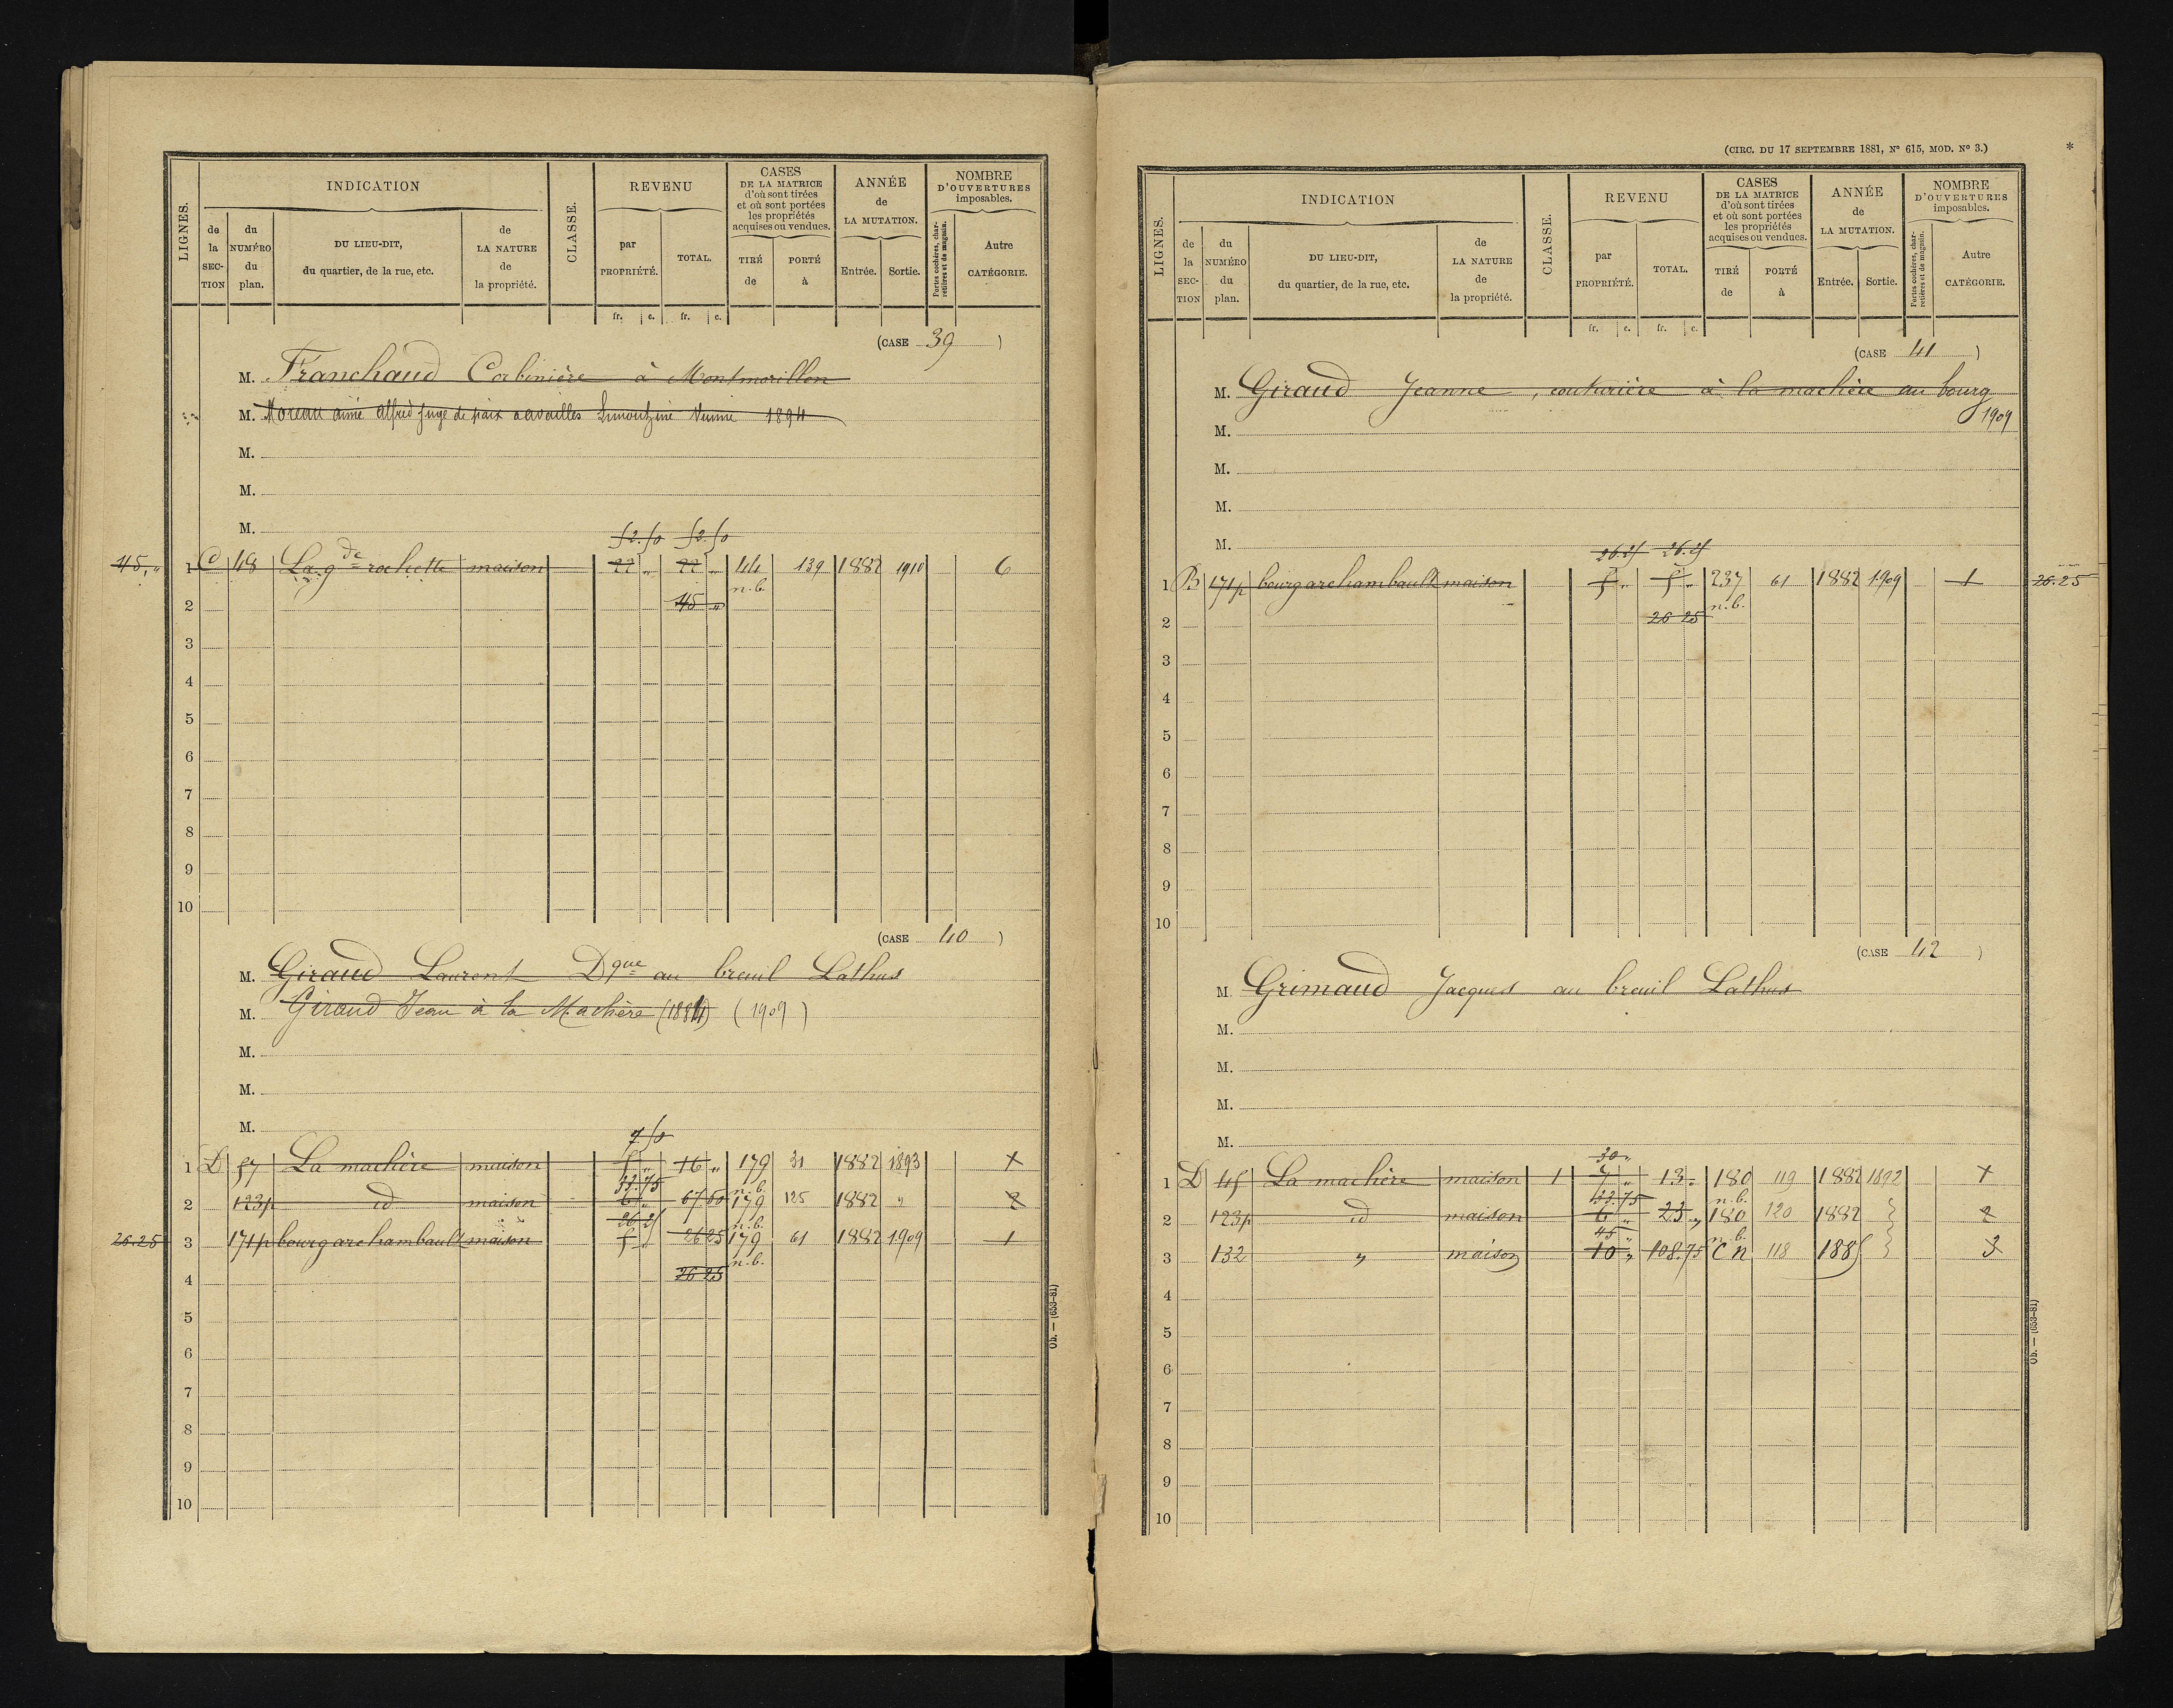 LIGNES.
INDICATION
de la SECTION
du NUMÉRO du plan.
DU LIEU-DIT, du quartier, de la rue, etc.
de LA NATURE de la propriété.
CLASSE.
REVENU
par PROPRIÉTÉ.
TOTAL.
CASES DE LA MATRICE d'où sont tirées et où sont portées les propriétés acquises ou vendues.
TIRÉ de
PORTÉ à
ANNÉE de LA MUTATION.
Entrée.
Sortie.
NOMBRE D'OUVERTURES imposables.
Portes cochères, charretières et de magasin.
Autre CATÉGORIE.
fr. c. fr. c.
(CASE 39 )
M. Franchaud Corbinière à Montmorillon
M. Moreau aimé alfred juge de paix a availles Limouzine Vienne 1894
M.
M.
M.
52.50 52.50
45,„ 1 C 48 La gde rochette maison 22 „ 22 „ 44 139 1882 1910 6
n.b.
2 45 „
3
4
5
6
7
8
9
10
(CASE 40 )
M. Giraud Laurent Dque au breuil Lathus
M. Giraud Jean à la Machère (1884) (1909)
M.
M.
M.
7.50
1 D 57 La machère maison 5 „ 16 „ 179 31 1882 1893 1
33.75 n.b.
2 123p id maison 6 „ 67 50 179 125 1882 „ 2
26.25 n.b.
26.25 3 171p bourg archambault maison 5 „ 26 25 179 61 1882 1909 1
n.b.
4 26 25
5
6
7
8
9
10
Ob. — (653-81)
(CIRC. DU 17 SEPTEMBRE 1881, Nº 615, MOD. Nº 3.) *
LIGNES.
INDICATION
de la SECTION
du NUMÉRO du plan.
DU LIEU-DIT, du quartier, de la rue, etc.
de LA NATURE de la propriété.
CLASSE.
REVENU
par PROPRIÉTÉ.
TOTAL.
CASES DE LA MATRICE d'où sont tirées et où sont portées les propriétés acquises ou vendues.
TIRÉ de
PORTÉ à
ANNÉE de LA MUTATION.
Entrée.
Sortie.
NOMBRE D'OUVERTURES imposables.
Portes cochères, charretières et de magasin.
Autre CATÉGORIE.
fr. c. fr. c.
(CASE 41 )
M. Giraud Jeanne, couturière à la machère au bourg
M. 1909
M.
M.
M.
26.25 26.25
1 B 171p bourg archambault maison 5 „ 5 „ 237 61 1882 1909 1 26.25
n.b.
2 26 25
3
4
5
6
7
8
9
10
(CASE 42 )
M. Grimaud Jacques au breuil Lathus
M.
M.
M.
M.
30 „
1 D 45 La machère maison 1 7 „ 13 „ 180 119 1882 1892 1
33.75 n.b.
2 123p id maison 6 „ 23 „ 180 120 1882 2
45 „ n.b.
3 132 „ maison 10 „ 108.75 C n 118 1885 3
4
5
6
7
8
9
10
Ob. — (653-81)